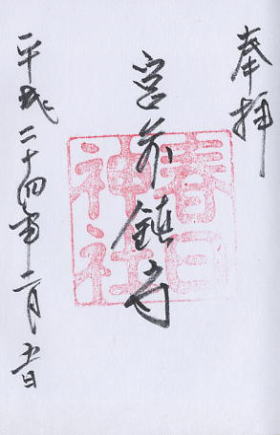 奉拝
宮前鎮守
春日
神社
平成二十四年二月五日